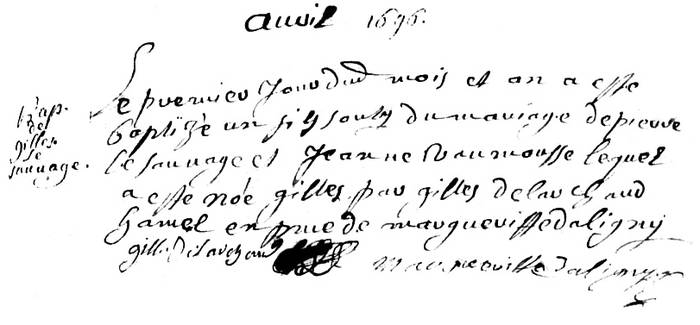 Auvil 1696.
Bap.
de
gilles
le
sauvage.
Le premier Jour dud mois et an a este
baptizé un fils souty du mariage de pierre
le sauvage et Jeanne Vaumousse lequel
a esté nōé gilles par gilles
hamel en pnce de margueritte daligny
gilles
daligny